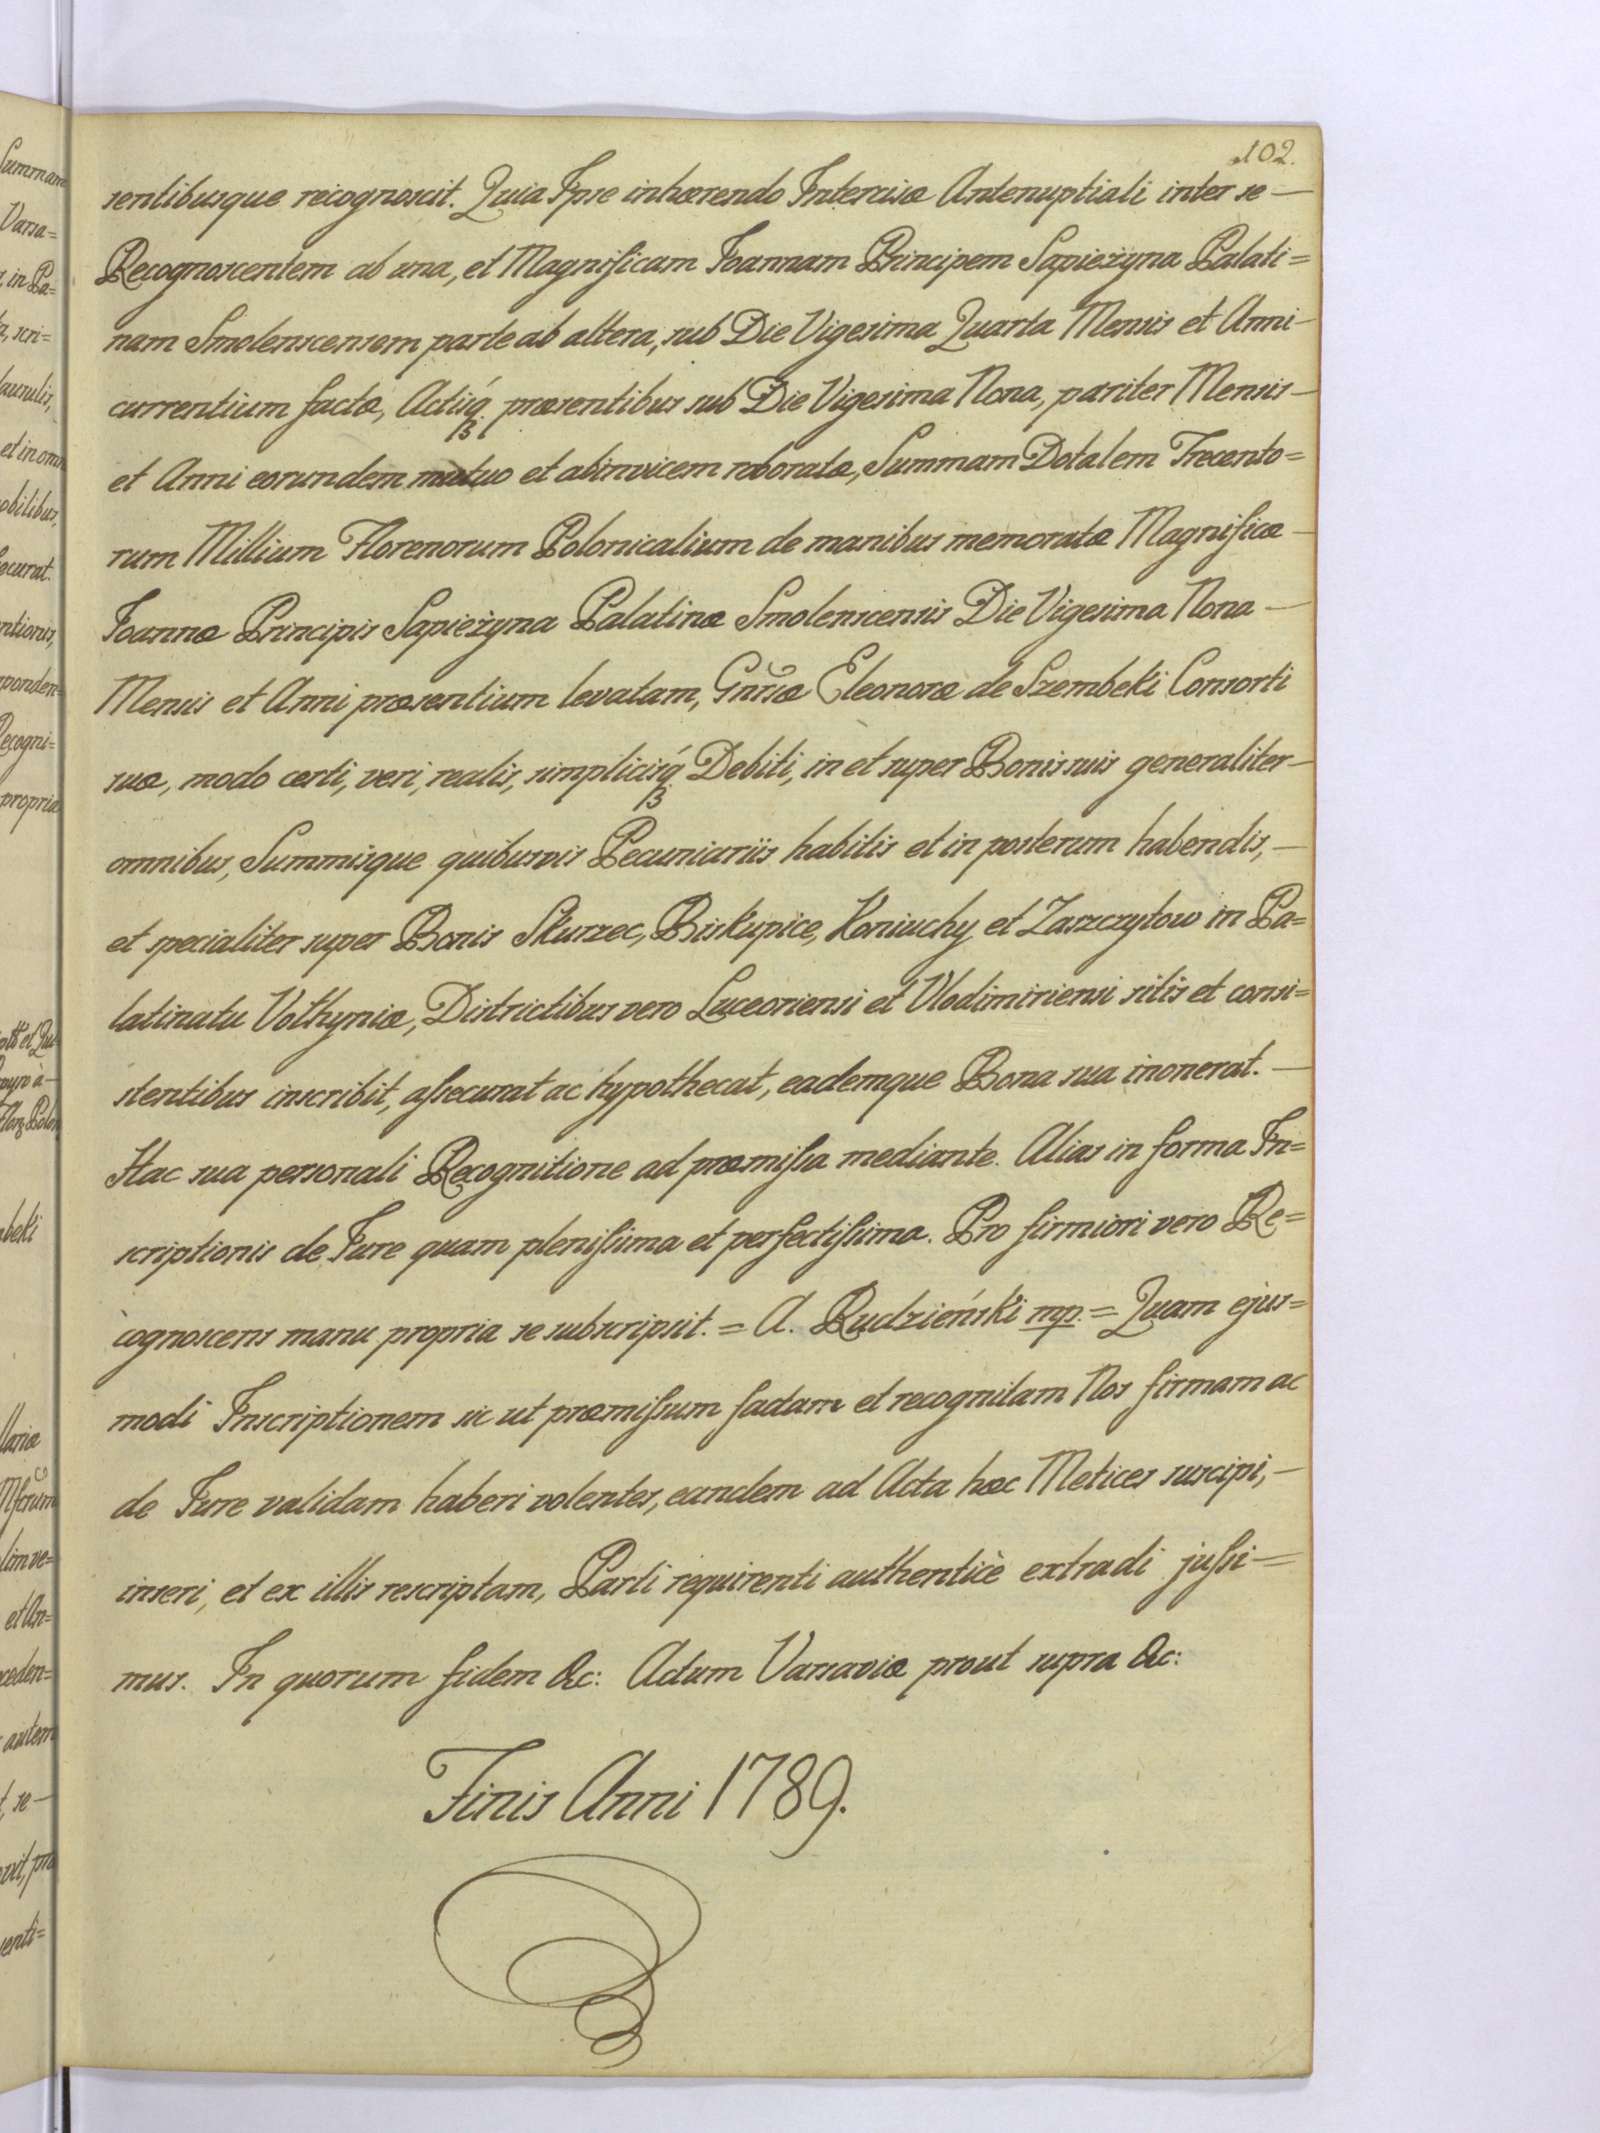 102.
sentibusque recognoscit. Quia Ipse inhærendo Intercisæ Antenuptiali inter se —
Recognoscentem ab una, et Magnificam Joannam Principem Sapieżyna Palati=
nam Smolenscensem parte ab altera, sub Die Vigesima Quarta Mensis et Anni —
currentium factæ, Actisq́ꝫ præsentibus sub Die Vigesima Nona, pariter Mensis —
et Anni eorundem mutuo et abinvicem roboratæ, Summam Dotalem Trecento=
rum Millium Florenorum Polonicalium de manibus memoratæ Magnificæ —
Joannæ Principis Sapieżyna Palatinæ Smolenscensis Die Vigesima Nona —
Mensis et Anni præsentium levatam, Gnrsæ Eleonoræ de Szembeki Consorti
suæ, modo certi, veri, realis, simplicisq́ꝫ Debiti, in et super Bonis suis generaliter —
omnibus, Summisque quibusvis Pecuniariis habitis et in posterum habendis, —
et specialiter super Bonis Skurzec, Biskupice, Koniuchy et Zaszczytow in Pa=
latinatu Volhyniæ, Districtibus vero Luceoriensi et Vlodimiriensi sitis et consi=
stentibus inscribit, aſsecurat ac hypothecat, eademque Bona sua inonerat. —
Hac sua personali Recognitione ad præmiſsa mediante. Alias in forma In=
scriptionis de Jure quam pleniſsima et perfectiſsima. Pro firmiori vero Re=
cognoscens manu propria se subscripsit. = A. Rudzieński mp. = Quam ejus=
modi Inscriptionem sic ut præmiſsum factam et recognitam Nos firmam ac
de Jure validam haberi volentes, eandem ad Acta hæc Metices suscipi, —
inseri, et ex illis rescriptam, Parti requirenti authenticè extradi juſsi =
mus. In quorum fidem &c: Actum Varsaviæ prout supra &c:
Finis Anni 1789.